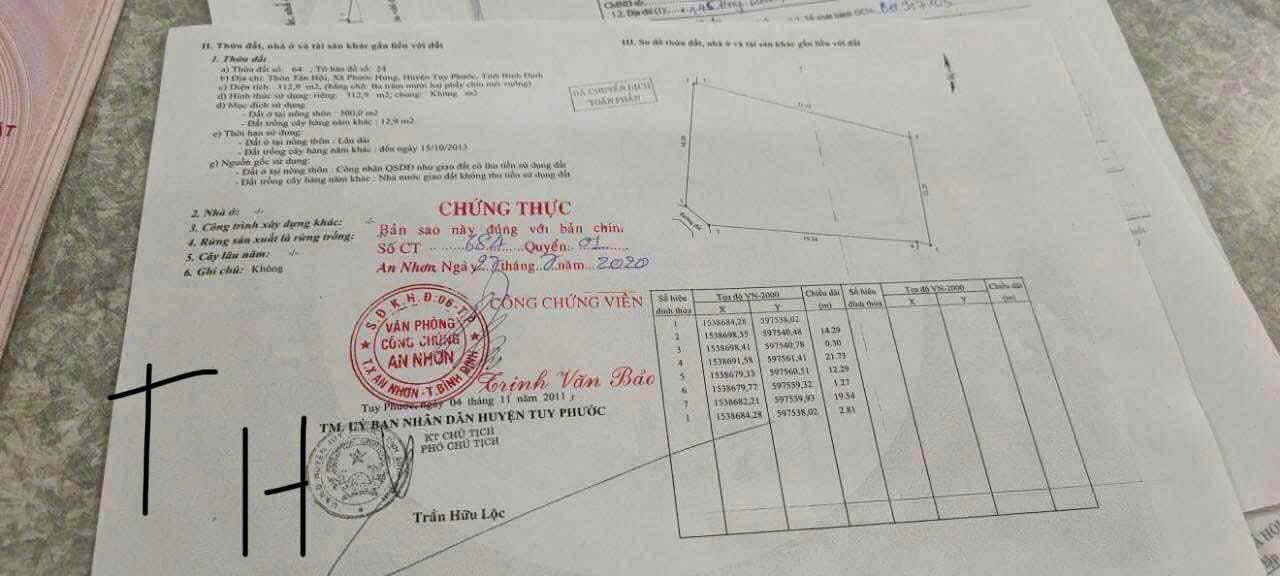 II. Thửa đất, nhà ở và tài sản khác gắn liền với đất
1. Thửa đất
a) Thửa đất số: 64 ; Tờ bản đồ số: 24
b) Địa chỉ: Thôn Tân Hội, Xã Phước Hưng, Huyện Tuy Phước, Tỉnh Bình Định
c) Diện tích: 312,9 m2, (Bằng chữ: Ba trăm mười hai phẩy chín mét vuông)
d) Hình thức sử dụng: riêng: 312,9 m2; chung: Không m2
đ) Mục đích sử dụng:
- Đất ở tại nông thôn : 300,0 m2
- Đất trồng cây hàng năm khác : 12,9 m2
e) Thời hạn sử dụng:
- Đất ở tại nông thôn : Lâu dài
- Đất trồng cây hàng năm khác : đến ngày 15/10/2013
g) Nguồn gốc sử dụng:
- Đất ở tại nông thôn : Công nhận QSDĐ như giao đất có thu tiền sử dụng đất
- Đất trồng cây hàng năm khác : Nhà nước giao đất không thu tiền sử dụng đất
2. Nhà ở: -/-
3. Công trình xây dựng khác: -/-
4. Rừng sản xuất là rừng trồng:
5. Cây lâu năm: -/-
6. Ghi chú: Không
CHỨNG THỰC
Bản sao này đúng với bản chính
Số CT 68A Quyển 01
An Nhơn, Ngày 27 tháng 7 năm 2020
CÔNG CHỨNG VIÊN
S.Đ.K.H.Đ:06-T.P
VĂN PHÒNG
CÔNG CHỨNG
AN NHƠN
T.X AN NHƠN - T.BÌNH ĐỊNH
Trịnh Văn Bảo
Tuy Phước, ngày 04 tháng 11 năm 2011
TM. UỶ BAN NHÂN DÂN HUYỆN TUY PHƯỚC
KT CHỦ TỊCH
PHÓ CHỦ TỊCH
Trần Hữu Lộc
T H
III. Sơ đồ thửa đất, nhà ở và tài sản khác gắn liền với đất
ĐÃ CHUYỂN DỊCH
TOÀN PHẦN
Số hiệu đỉnh thửa Tọa độ VN-2000 Chiều dài (m) Số hiệu đỉnh thửa Tọa độ VN-2000 Chiều dài (m)
X Y X Y
1 1538684,28 597538,02
2 1538698,35 597540,48 14.29
3 1538698,41 597540,78 0.30
4 1538691,58 597561,41 21.73
5 1538679,33 597560,51 12.29
6 1538679,77 597559,32 1.27
7 1538682,21 597539,93 19.54
1 1538684,28 597538,02 2.81